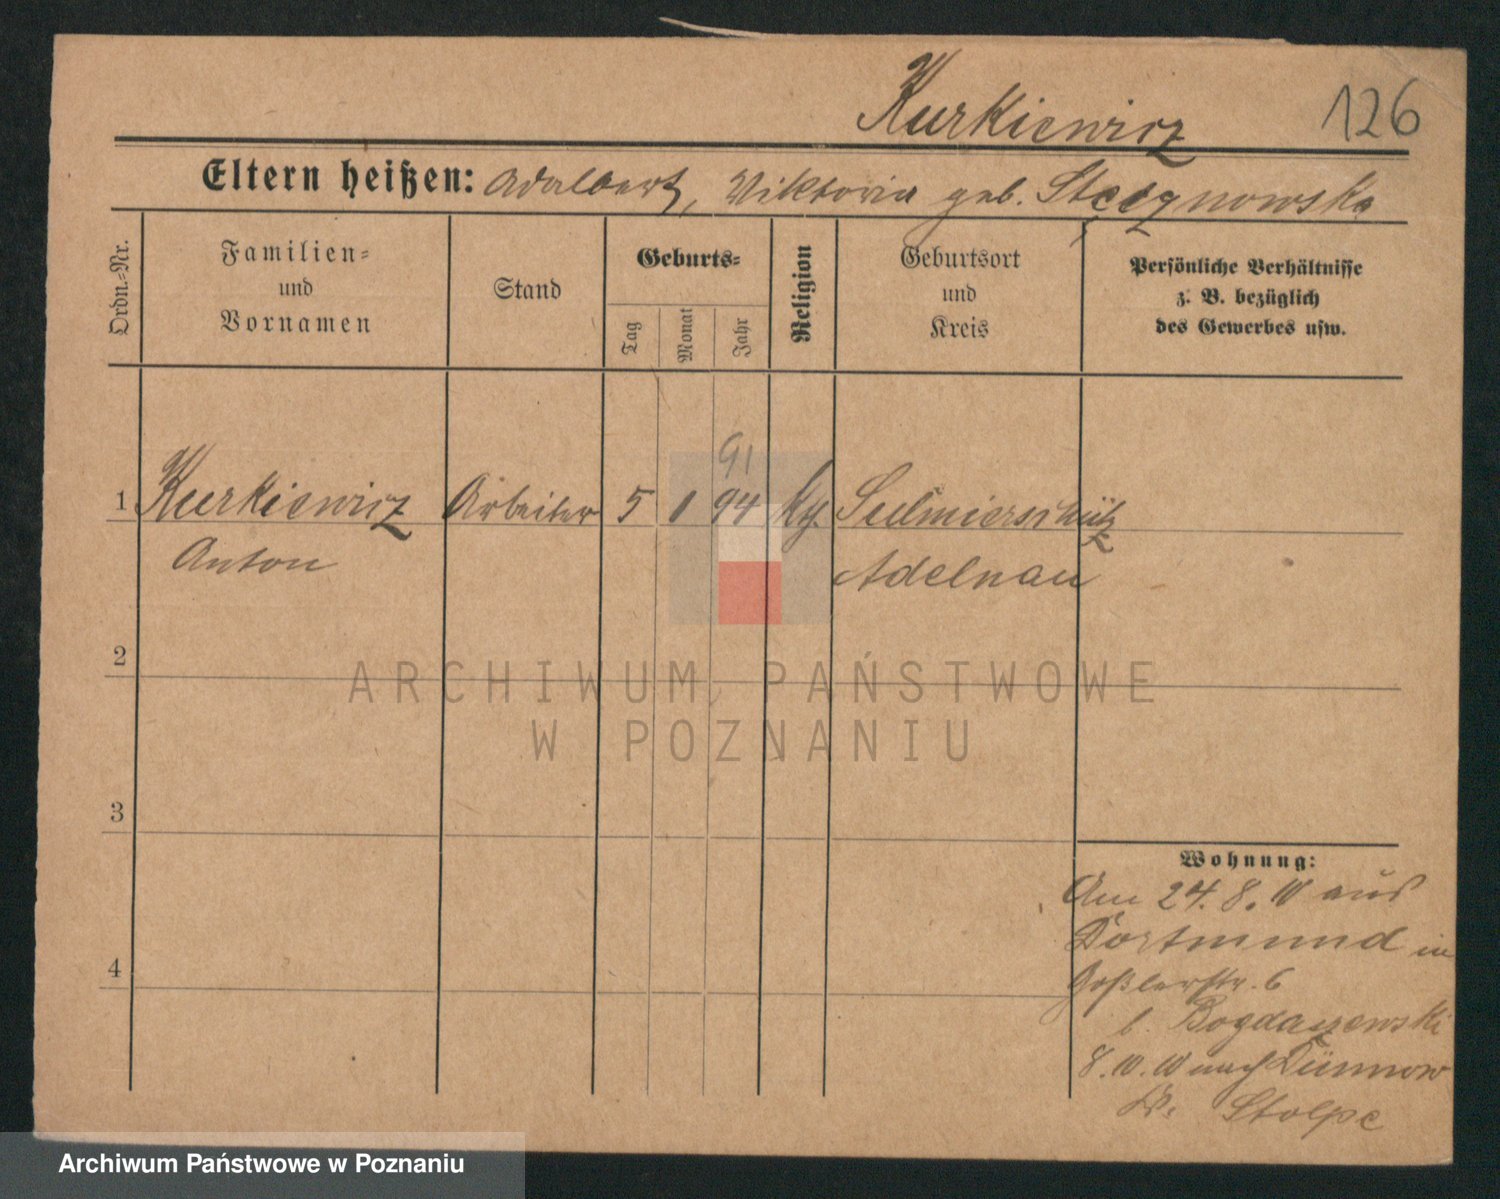 Kurkiewicz
126
Eltern heißen: Adalbert, Viktoria geb.
Ordn.-Nr.
Familien-
und
Vornamen
Stand
Geburts-
Tag
Monat
Jahr
Religion
Geburtsort
und
Kreis
Persönliche Verhältnisse
z. B. bezüglich
des Gewerbes usw.
91
1 Kurkiewicz Arbeiter 5 1 94 Sulmierschütz
Anton Adelnau
2
3
4
Wohnung:
Am 24. 8. 10 aus
Dortmund in
Goßlerstr. 6
b.
8. 10. 10 nach Dünnow
Kr. Stolpe
ARCHIWUM PAŃSTWOWE
W POZNANIU
Archiwum Państwowe w Poznaniu